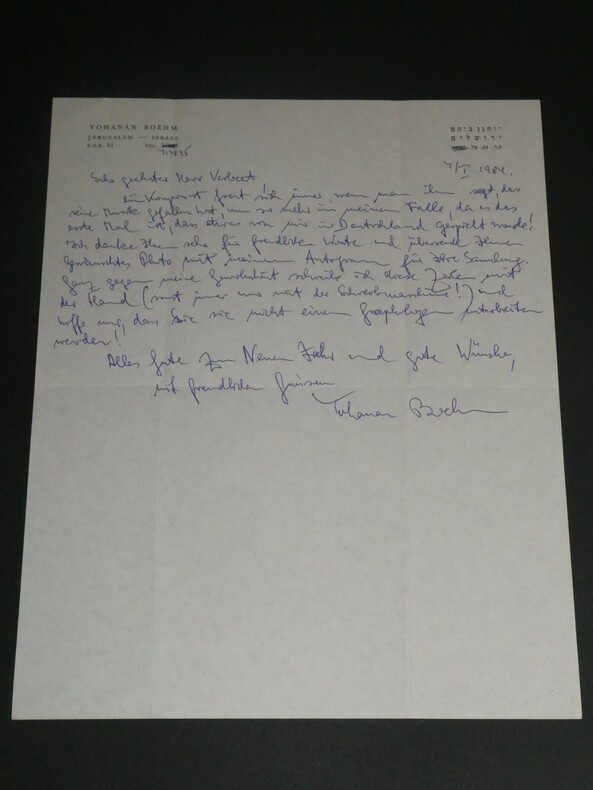 YOHANAN BOEHM
JERUSALEM — ISRAEL
P.O.B. 81 TEL.
717895
יוחנן ביהם
ירושלים
ת.ד. 81 טל.
4/I 1984.
Sehr geehrter Herr Verbeet!
ein Komponist freut sich immer, wenn man ihm sagt, das
seine Musik gefallen hat, um so mehr in meinem Falle, da es das
erste Mal ist, dass etwas von mir in Deutschland gespielt wurde!
Ich danke Ihnen sehr für freundliche Worte und übersende Ihnen
gewünschtes Photo mit meinem Autogramm für Ihre Samlung.
Ganz gegen meine Gewohnheit schreibe ich diese Zeilen mit
der Hand (sonst immer nur mit der Schreibmaschine!) und
hoffe nur, dass Sie sie nicht einem Graphologen unterbreiten
werden!
Alles Gute zum Neuen Jahr und gute Wünsche,
mit freundlichen Grüssen
Yohanan Boehm